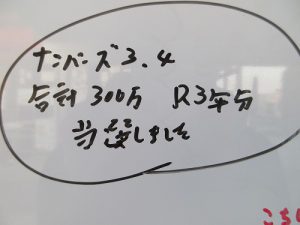 ナンバーズ3.4
合計300万 R3年分
当選しました
こち